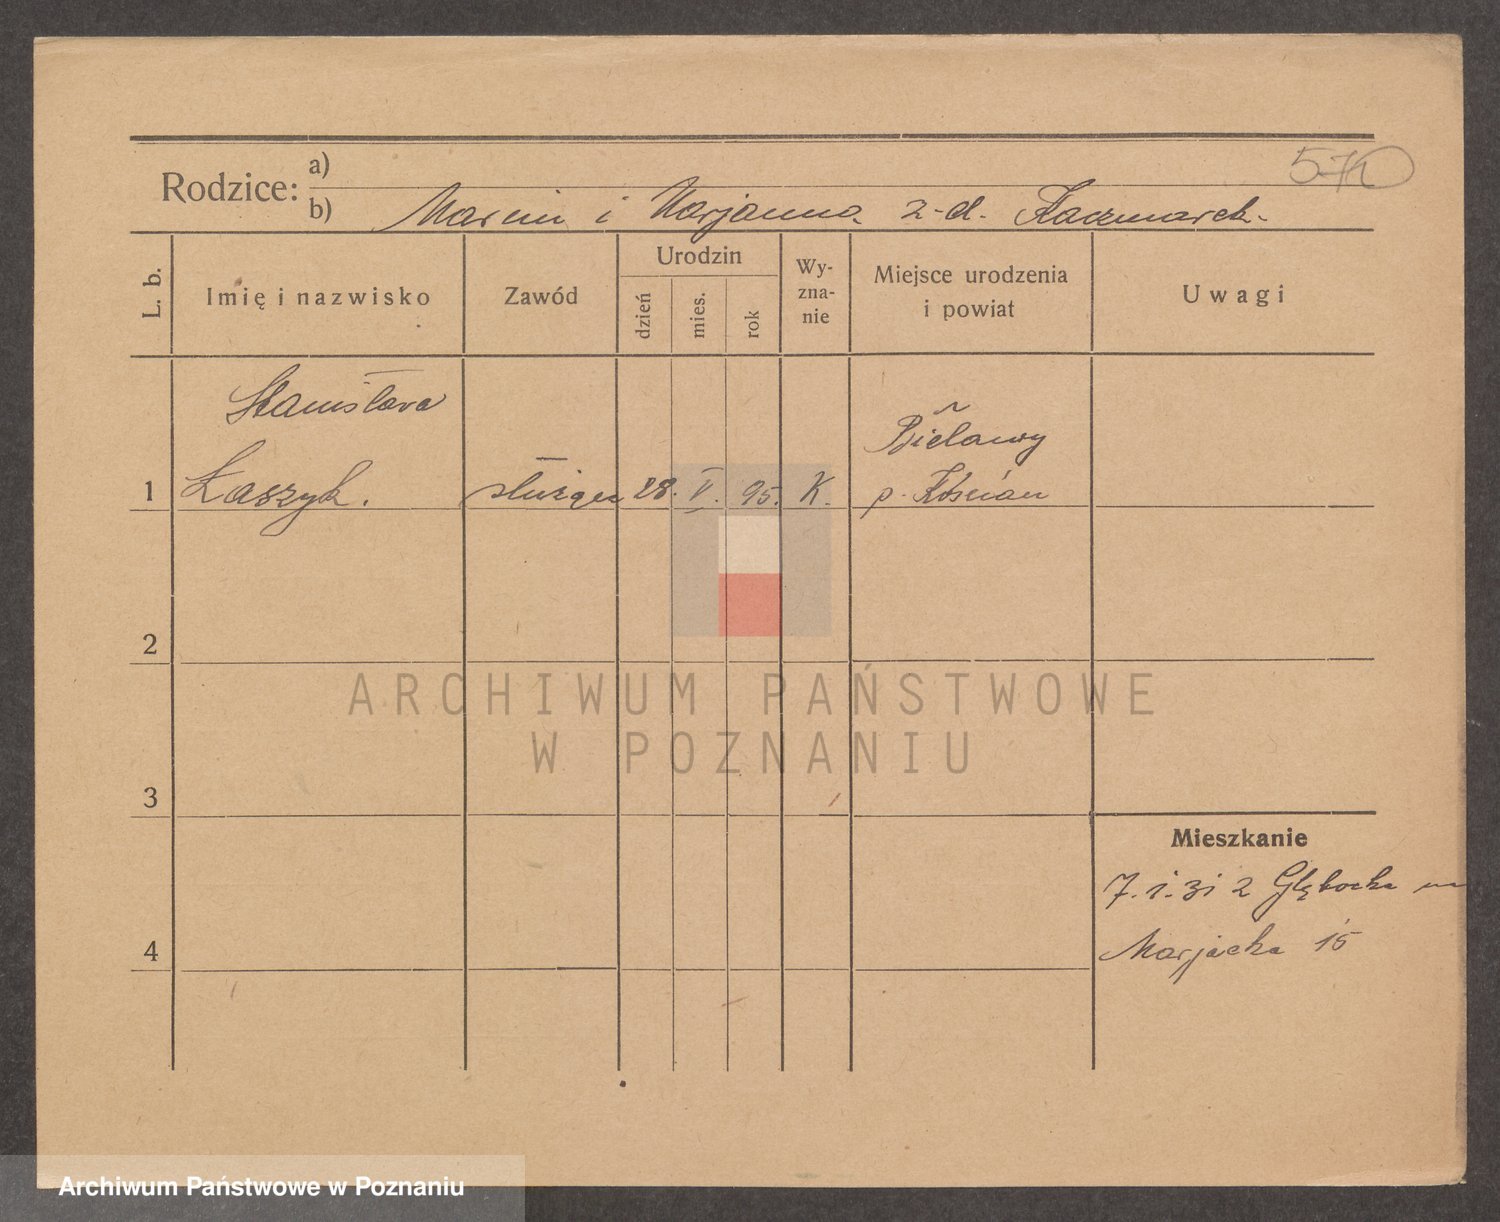 Rodzice: a)
b) Marcin i Marjanna z-d. Kaczmarek-
L. b.
Imię i nazwisko
Zawód
Urodzin
dzień
mies.
rok
Wy-
zna-
nie
Miejsce urodzenia
i powiat
Uwagi
Stanisława
1 Łaszyk. służąca 28. V. 95. K.
Bielawy
p. Kościan
2
3
4
Mieszkanie
7. 1. 31 z Głęboka
Marjacka 15
ARCHIWUM PAŃSTWOWE
W POZNANIU
Archiwum Państwowe w Poznaniu